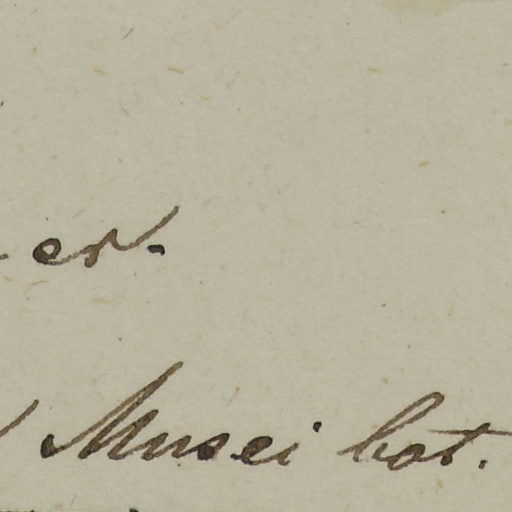 er.
Musei bot.